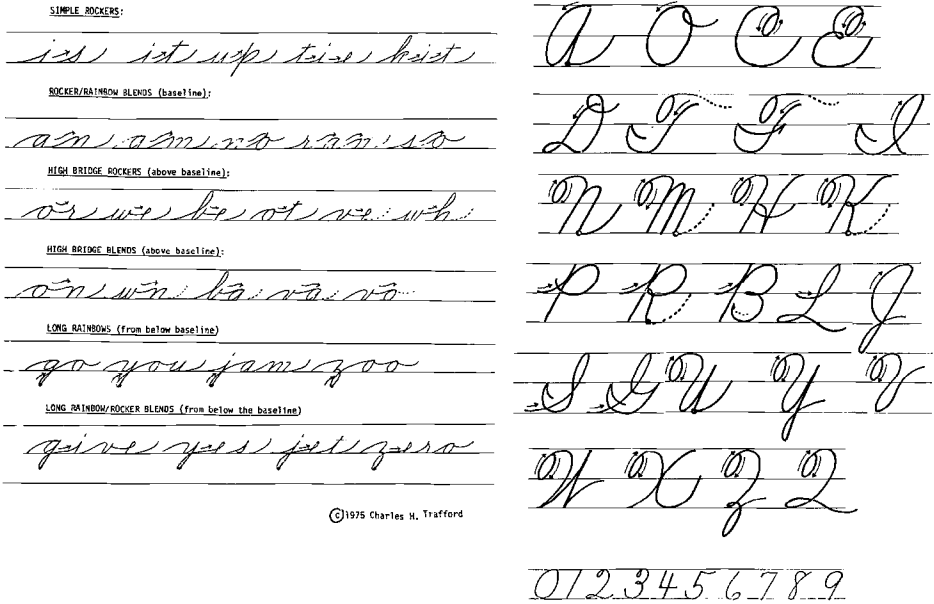 SIMPLE ROCKERS:
is it up tie hit
ROCKER/RAINBOW BLENDS (baseline):
an am no ran so
HIGH BRIDGE ROCKERS (above baseline):
or we be ot ve wh
HIGH BRIDGE BLENDS (above baseline):
on wn ba va vo
LONG RAINBOWS (from below baseline)
go you jam zoo
LONG RAINBOW/ROCKER BLENDS (from below the baseline)
give yes jet zero
©1975 Charles H. Trafford
A O C E
D T F I
N M H K
P R B L J
S G U Y V
W X Z Q
0 1 2 3 4 5 6 7 8 9